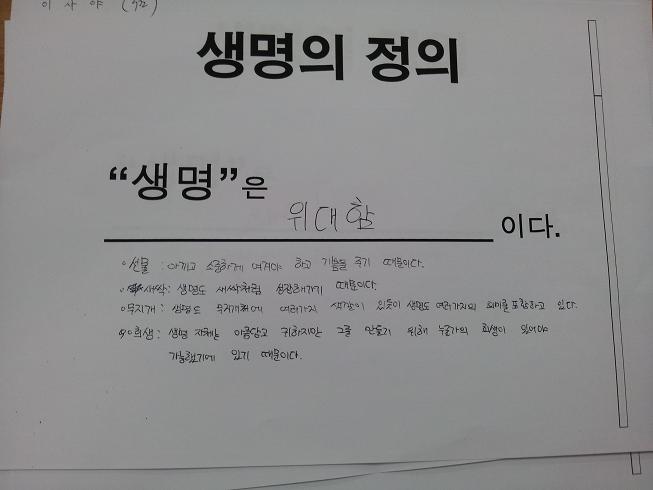 이사야 (32)
생명의 정의
"생명"은 위대함 이다.
◦선물 : 아끼고 소중하게 여겨야 하고 기쁨을 주기 때문이다.
◦새싹 : 생명도 새싹처럼 성장해가기 때문이다.
◦무지개 : 생명도 무지개처럼 여러가지 색깔이 있듯이 생명도 여러가지의 의미를 포함하고 있다.
◦희생 : 생명 자체는 아름답고 귀하지만 그를 만들기 위해 누군가의 희생이 있어야
가능했기에 있기 때문이다.